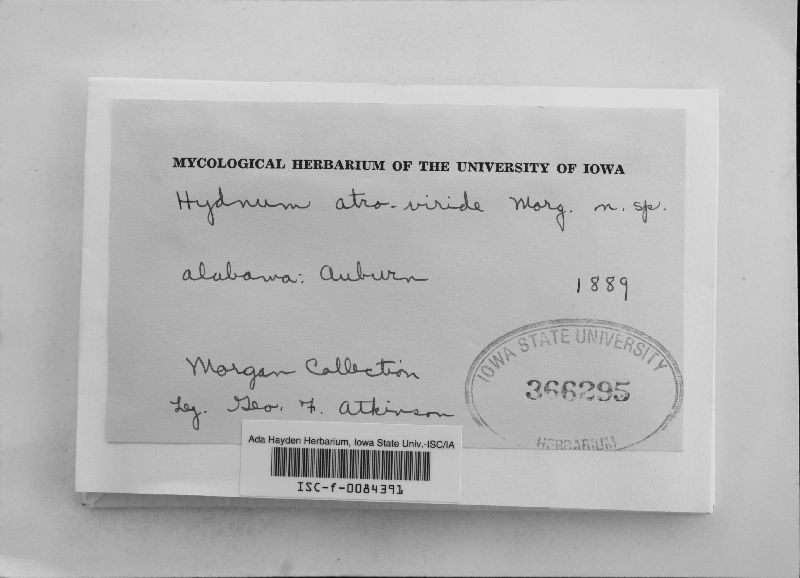 MYCOLOGICAL HERBARIUM OF THE UNIVERSITY OF IOWA
Hydnum atro-viride Morg. n. sp.
Alabama: Auburn 1889
Morgan Collection
Leg. Geo. F. Atkinson
IOWA STATE UNIVERSITY
366295
HERBARIUM
Ada Hayden Herbarium, Iowa State Univ.-ISC/IA
ISC-f-0084391